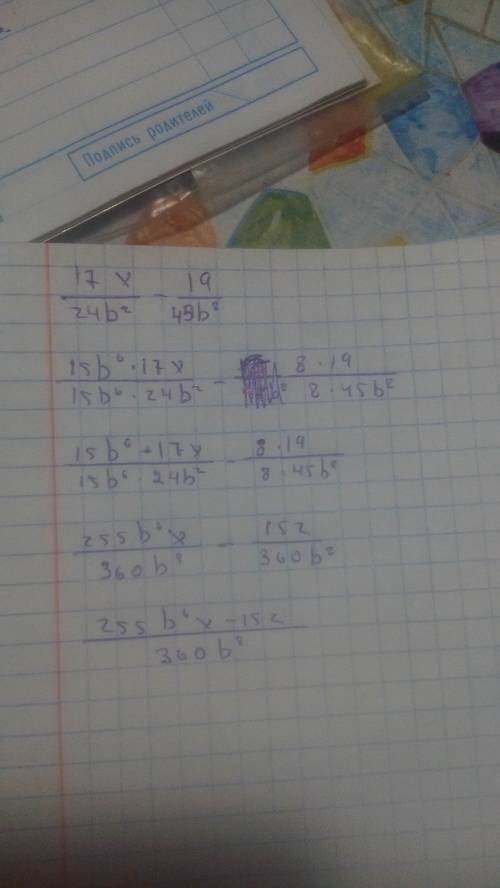 Подпись родителей
17x/24b² - 19/45b⁸
15b⁶·17x/15b⁶·24b² - 8·19/8·45b⁸
15b⁶+17x/15b⁶·24b² - 8·19/8·45b⁸
255b⁶x/360b⁸ - 152/360b⁸
255b⁶x-152/360b⁸